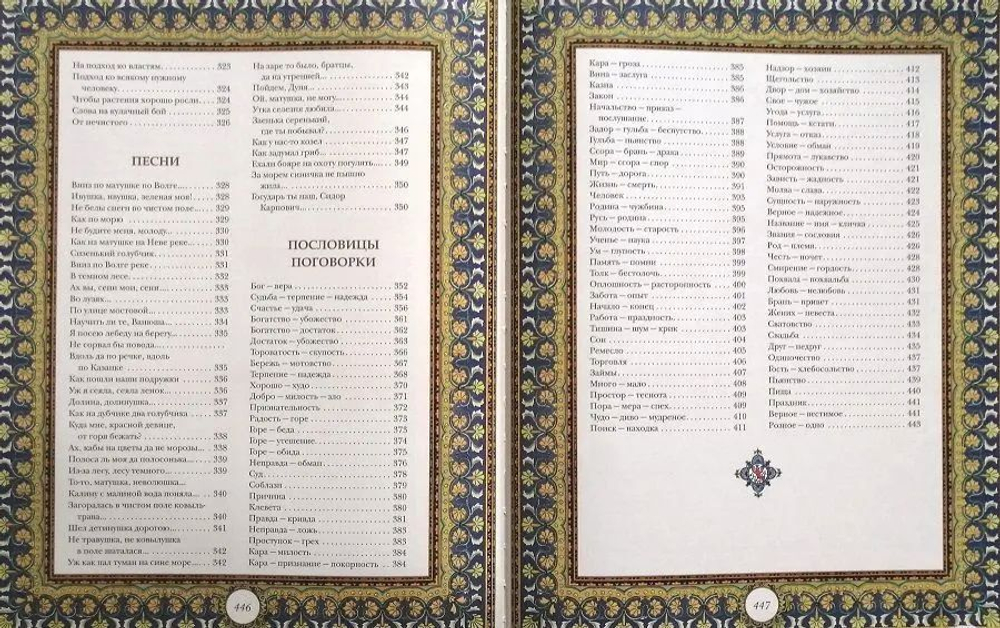 На подход ко властям. . . . . . . . . . . . 323
Подход ко всякому нужному
человеку. . . . . . . . . . . . . . . . . . . 324
Чтобы растения хорошо росли. . . . 324
Слова на кулачный бой . . . . . . . . . . 325
От нечистого . . . . . . . . . . . . . . . . . 326
ПЕСНИ
Вниз по матушке по Волге... . . . . . . 328
Ивушка, ивушка, зеленая моя! . . . . 328
Не белы снеги во чистом поле... . . . 329
Как по морю . . . . . . . . . . . . . . . . . 329
Не будите меня, молоду... . . . . . . . . 330
Как на матушке на Неве реке... . . . . 330
Сизенький голубчик. . . . . . . . . . . . 331
Вниз по Волге реке. . . . . . . . . . . . . 331
В темном лесе. . . . . . . . . . . . . . . . 332
Ах вы, сени мои, сени... . . . . . . . . . 333
Во лузях... . . . . . . . . . . . . . . . . . . 333
По улице мостовой... . . . . . . . . . . . 333
Научить ли те, Ванюша... . . . . . . . . 334
Я посею лебеду на берегу... . . . . . . . 335
Не сорвал бы повода...
Вдоль да по речке, вдоль
по Казанке . . . . . . . . . . . . . . . . . 335
Как пошли наши подружки . . . . . . 336
Уж я сеяла, сеяла ленок... . . . . . . . . 336
Долина, долинушка... . . . . . . . . . . . 337
Как на дубчике два голубчика . . . . 337
Куда мне, красной девице,
от горя бежать? . . . . . . . . . . . . . . 338
Ах, кабы на цветы да не морозы... . . 338
Полоса ль моя да полосонька... . . . . 339
Из-за лесу, лесу темного... . . . . . . . . 339
То-то, матушка, неволюшка...
Калину с малиной вода поняла... . . 340
Загоралась в чистом поле ковыль-
трава... . . . . . . . . . . . . . . . . . . . . 340
Шел детинушка дорогою... . . . . . . . 341
Не травушка, не ковылушка
в поле шаталася... . . . . . . . . . . . . 342
Уж как пал туман на сине море... . . . 342
На заре то было, братцы,
да на утренней... . . . . . . . . . . . . . 342
Пойдем, Дуня... . . . . . . . . . . . . . . . 343
Ой, матушка, не могу... . . . . . . . . . . 344
Утка селезня любила... . . . . . . . . . . 344
Заенька серенький,
где ты побывал? . . . . . . . . . . . . . 346
Как у нас-то козел . . . . . . . . . . . . . 347
Как задумал гриб... . . . . . . . . . . . . 347
Ехали бояре на охоту погулять... . . . 349
За морем синичка не пышно
жила... . . . . . . . . . . . . . . . . . . . . 350
Государь ты наш, Сидор
Карпович... . . . . . . . . . . . . . . . . 350
ПОСЛОВИЦЫ
ПОГОВОРКИ
Бог – вера . . . . . . . . . . . . . . . . . . . 352
Судьба – терпение – надежда . . . . . 354
Счастье – удача . . . . . . . . . . . . . . . 356
Богатство – убожество . . . . . . . . . . 361
Богатство – достаток . . . . . . . . . . . 362
Достаток – убожество . . . . . . . . . . 363
Тороватость – скупость. . . . . . . . . . 366
Бережь – мотовство . . . . . . . . . . . . 367
Терпение – надежда . . . . . . . . . . . . 368
Хорошо – худо . . . . . . . . . . . . . . . . 370
Добро – милость – зло . . . . . . . . . . 371
Признательность . . . . . . . . . . . . . . 372
Радость – горе . . . . . . . . . . . . . . . . 373
Горе – беда . . . . . . . . . . . . . . . . . . 375
Горе – утешение . . . . . . . . . . . . . . . 374
Горе – обида . . . . . . . . . . . . . . . . . 375
Неправда – обман . . . . . . . . . . . . . 376
Суд. . . . . . . . . . . . . . . . . . . . . . . . 378
Соблазн . . . . . . . . . . . . . . . . . . . . 380
Причина . . . . . . . . . . . . . . . . . . . . 380
Клевета . . . . . . . . . . . . . . . . . . . . 380
Правда – кривда . . . . . . . . . . . . . . 381
Неправда – ложь . . . . . . . . . . . . . . 383
Проступок – грех . . . . . . . . . . . . . . 383
Кара – милость . . . . . . . . . . . . . . . 384
Кара – признание – покорность . . 384
446
Кара – гроза . . . . . . . . . . . . . . . . . 385
Вина – заслуга . . . . . . . . . . . . . . . . 385
Казна . . . . . . . . . . . . . . . . . . . . . . 386
Закон . . . . . . . . . . . . . . . . . . . . . . 386
Начальство – приказ –
послушание. . . . . . . . . . . . . . . . . 387
Задор – гульба – беспутство . . . . . . 388
Гульба – пьянство . . . . . . . . . . . . . . 388
Ссора – брань – драка . . . . . . . . . . . 389
Мир – ссора – спор . . . . . . . . . . . . . 390
Путь – дорога . . . . . . . . . . . . . . . . . 390
Жизнь – смерть. . . . . . . . . . . . . . . . 391
Человек . . . . . . . . . . . . . . . . . . . . . 393
Родина – чужбина . . . . . . . . . . . . . . 395
Русь – родина . . . . . . . . . . . . . . . . . 395
Молодость – старость . . . . . . . . . . . 396
Ученье – наука . . . . . . . . . . . . . . . . 397
Ум – глупость . . . . . . . . . . . . . . . . . 398
Память – помни . . . . . . . . . . . . . . . 399
Толк – бестолочь. . . . . . . . . . . . . . . 399
Оплошность – расторопность . . . . 400
Забота – опыт . . . . . . . . . . . . . . . . . 401
Начало – конец . . . . . . . . . . . . . . . . 402
Работа – праздность. . . . . . . . . . . . . 403
Тишина – шум – крик . . . . . . . . . . . 403
Сон . . . . . . . . . . . . . . . . . . . . . . . . 404
Ремесло . . . . . . . . . . . . . . . . . . . . . 405
Торговля . . . . . . . . . . . . . . . . . . . . 406
Займы. . . . . . . . . . . . . . . . . . . . . . 407
Много – мало . . . . . . . . . . . . . . . . . 408
Простор – теснота . . . . . . . . . . . . . . 409
Пора – мера – спех. . . . . . . . . . . . . . 409
Чудо – диво – мудреное . . . . . . . . . . 410
Поиск – находка . . . . . . . . . . . . . . . 411
Надзор – хозяин . . . . . . . . . . . . . . . 412
Щегольство . . . . . . . . . . . . . . . . . . 413
Двор – дом – хозяйство . . . . . . . . . . 414
Свое – чужое . . . . . . . . . . . . . . . . . 415
Угода – услуга . . . . . . . . . . . . . . . . . 416
Помощь – кстати. . . . . . . . . . . . . . . 417
Услуга – отказ . . . . . . . . . . . . . . . . . 418
Условие – обман . . . . . . . . . . . . . . . 419
Прямота – лукавство . . . . . . . . . . . . 420
Осторожность . . . . . . . . . . . . . . . . 421
Зависть – жадность . . . . . . . . . . . . . 421
Молва – слава. . . . . . . . . . . . . . . . . 422
Сущность – наружность . . . . . . . . . 423
Верное – надежное. . . . . . . . . . . . . . 424
Название – имя – кличка . . . . . . . . . 425
Звания – сословия . . . . . . . . . . . . . . 426
Род – племя. . . . . . . . . . . . . . . . . . . 427
Честь – почет . . . . . . . . . . . . . . . . . 428
Смирение – гордость. . . . . . . . . . . . 428
Похвала – похвальба . . . . . . . . . . . . 430
Любовь – нелюбовь . . . . . . . . . . . . . 431
Брань – привет . . . . . . . . . . . . . . . . 431
Жених – невеста. . . . . . . . . . . . . . . 432
Сватовство . . . . . . . . . . . . . . . . . . 433
Свадьба . . . . . . . . . . . . . . . . . . . . . 434
Друг – недруг . . . . . . . . . . . . . . . . . 435
Одиночество . . . . . . . . . . . . . . . . . 437
Гость – хлебосольство . . . . . . . . . . . 437
Пьянство . . . . . . . . . . . . . . . . . . . . 439
Пища . . . . . . . . . . . . . . . . . . . . . . 440
Праздник . . . . . . . . . . . . . . . . . . . . 441
Верное – вестимое . . . . . . . . . . . . . . 441
Розное – одно . . . . . . . . . . . . . . . . . 443
447